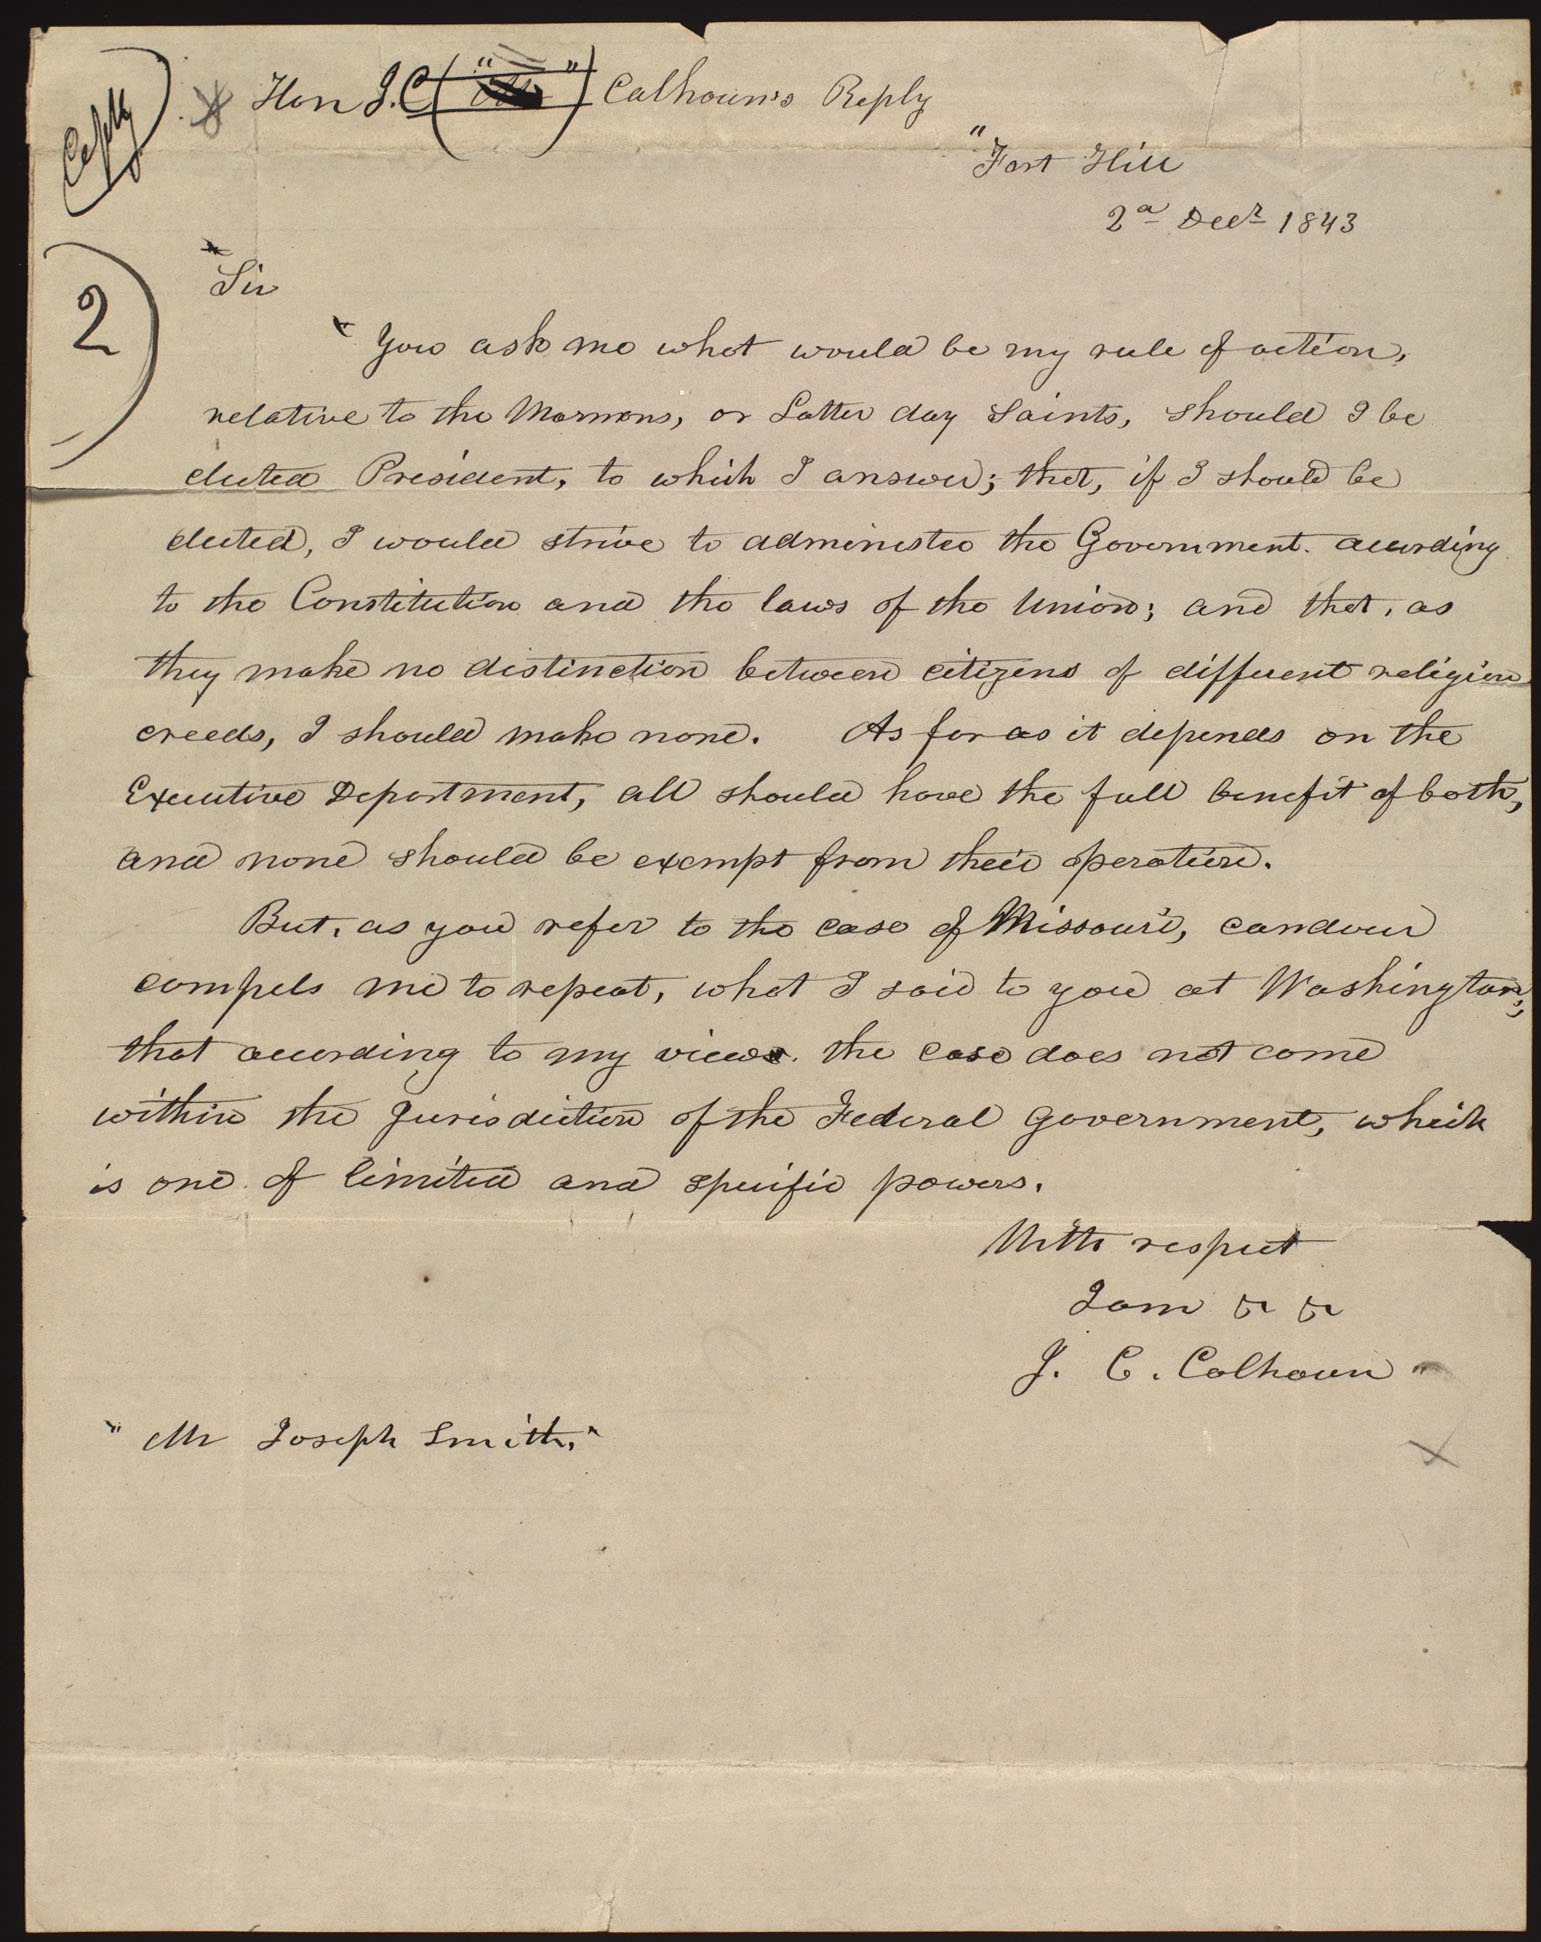 Copy
Hon J. C. Calhoun's Reply
"Fort Hill
2d Decr 1843
"Sir
"You ask me what would be my rule of action,
relative to the Mormons, or Latter day Saints, should I be
elected President, to which I answer; that, if I should be
elected, I would strive to administer the Government according
to the Constitution and the laws of the Union; and that, as
they make no distinction between citizens of different religious
creeds, I should make none. As far as it depends on the
Executive Department, all should have the full benefit of both,
and none should be exempt from their operation.
2
But, as you refer to the case of Missouri, candour
compels me to repeat, what I said to you at Washington,
that according to my views. the case does not come
within the Jurisdiction of the Federal Government, which
is one of limited and specific powers.
With respect
I am &c &c
J. C. Calhoun"
"Mr Joseph Smith,"